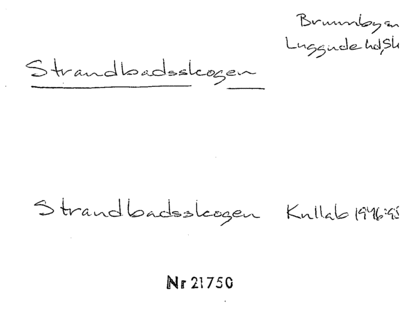 Brunnby sn
Luggude hd, Sk
Strandbadsskogen
Strandbadsskogen Kullab 1946:95
Nr 21750